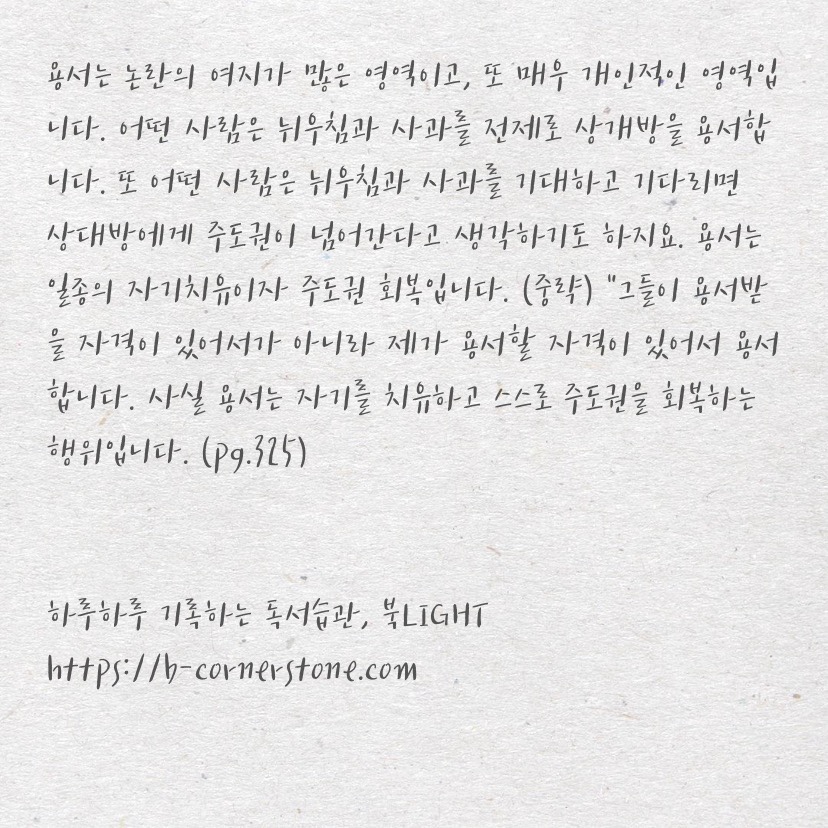 용서는 논란의 여지가 많은 영역이고, 또 매우 개인적인 영역입
니다. 어떤 사람은 뉘우침과 사과를 전제로 상개방을 용서합
니다. 또 어떤 사람은 뉘우침과 사과를 기대하고 기다리면
상대방에게 주도권이 넘어간다고 생각하기도 하지요. 용서는
일종의 자기치유이자 주도권 회복입니다. (중략) "그들이 용서받
을 자격이 있어서가 아니라 제가 용서할 자격이 있어서 용서
합니다. 사실 용서는 자기를 치유하고 스스로 주도권을 회복하는
행위입니다. (pg.325)
하루하루 기록하는 독서습관, 북LIGHT
https://b-cornerstone.com